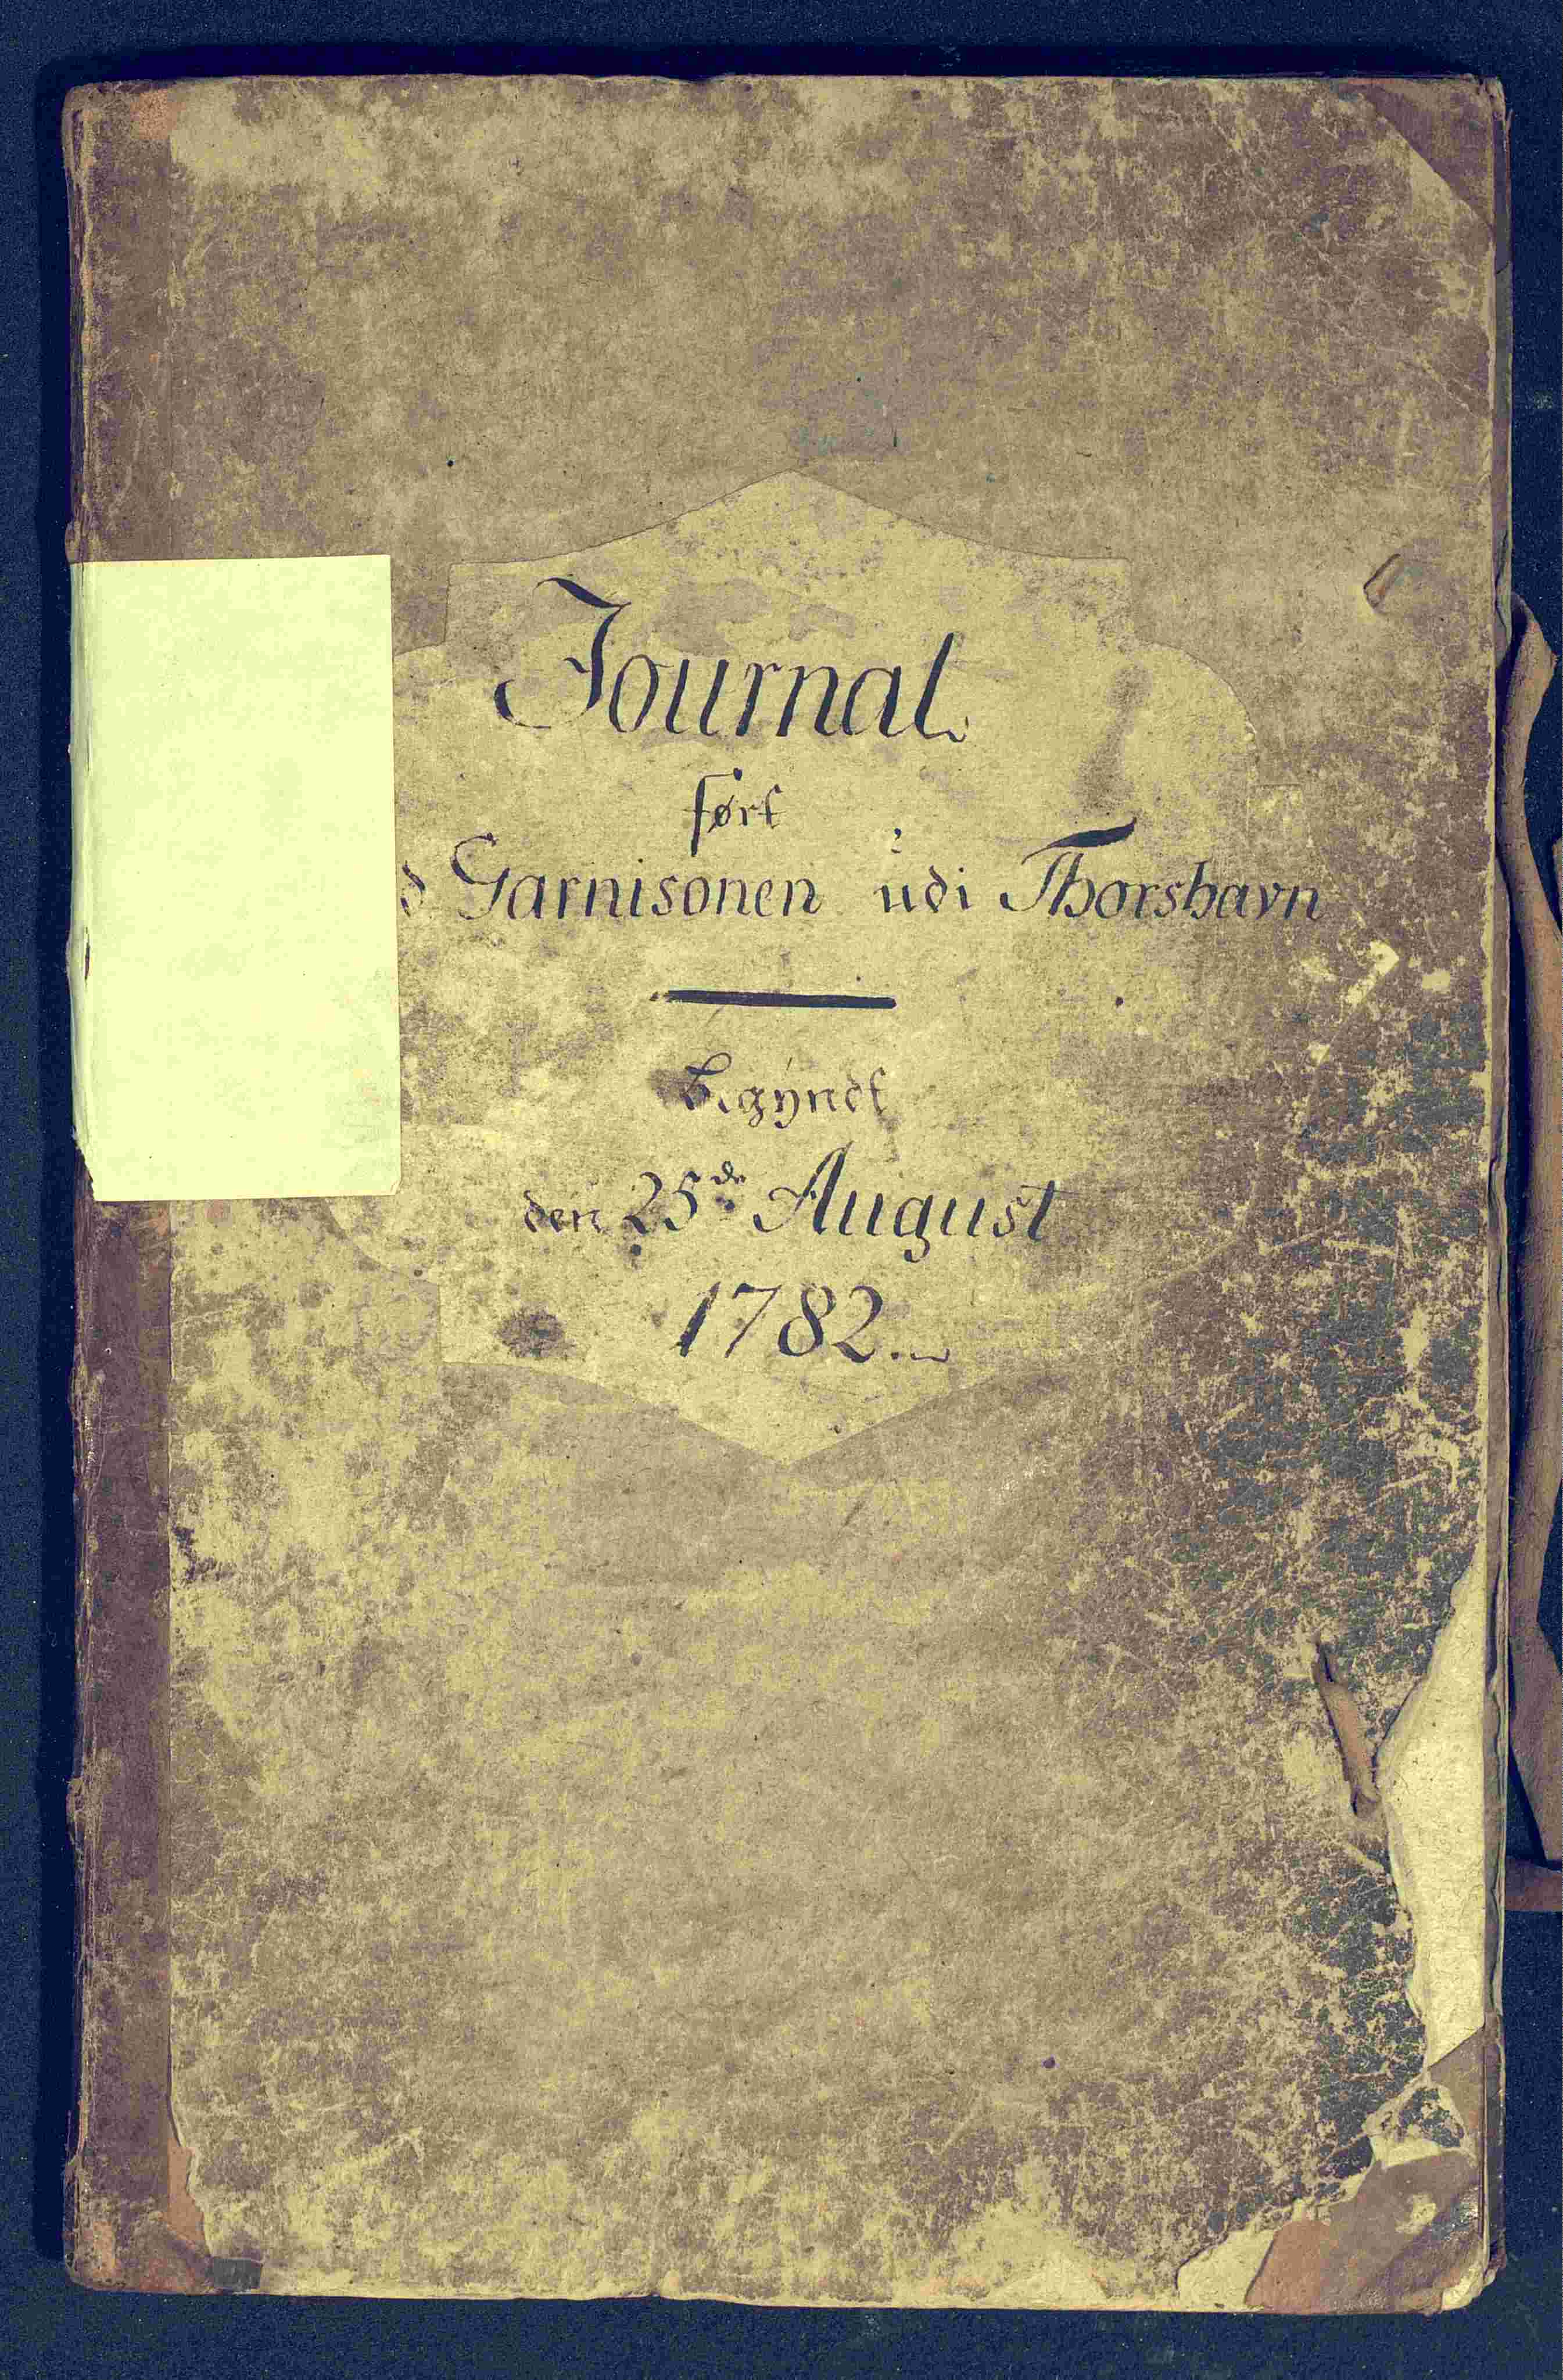 Journal
ført
d Garnisonen udi Thorshavn
Begyndt
den 25de August
1782